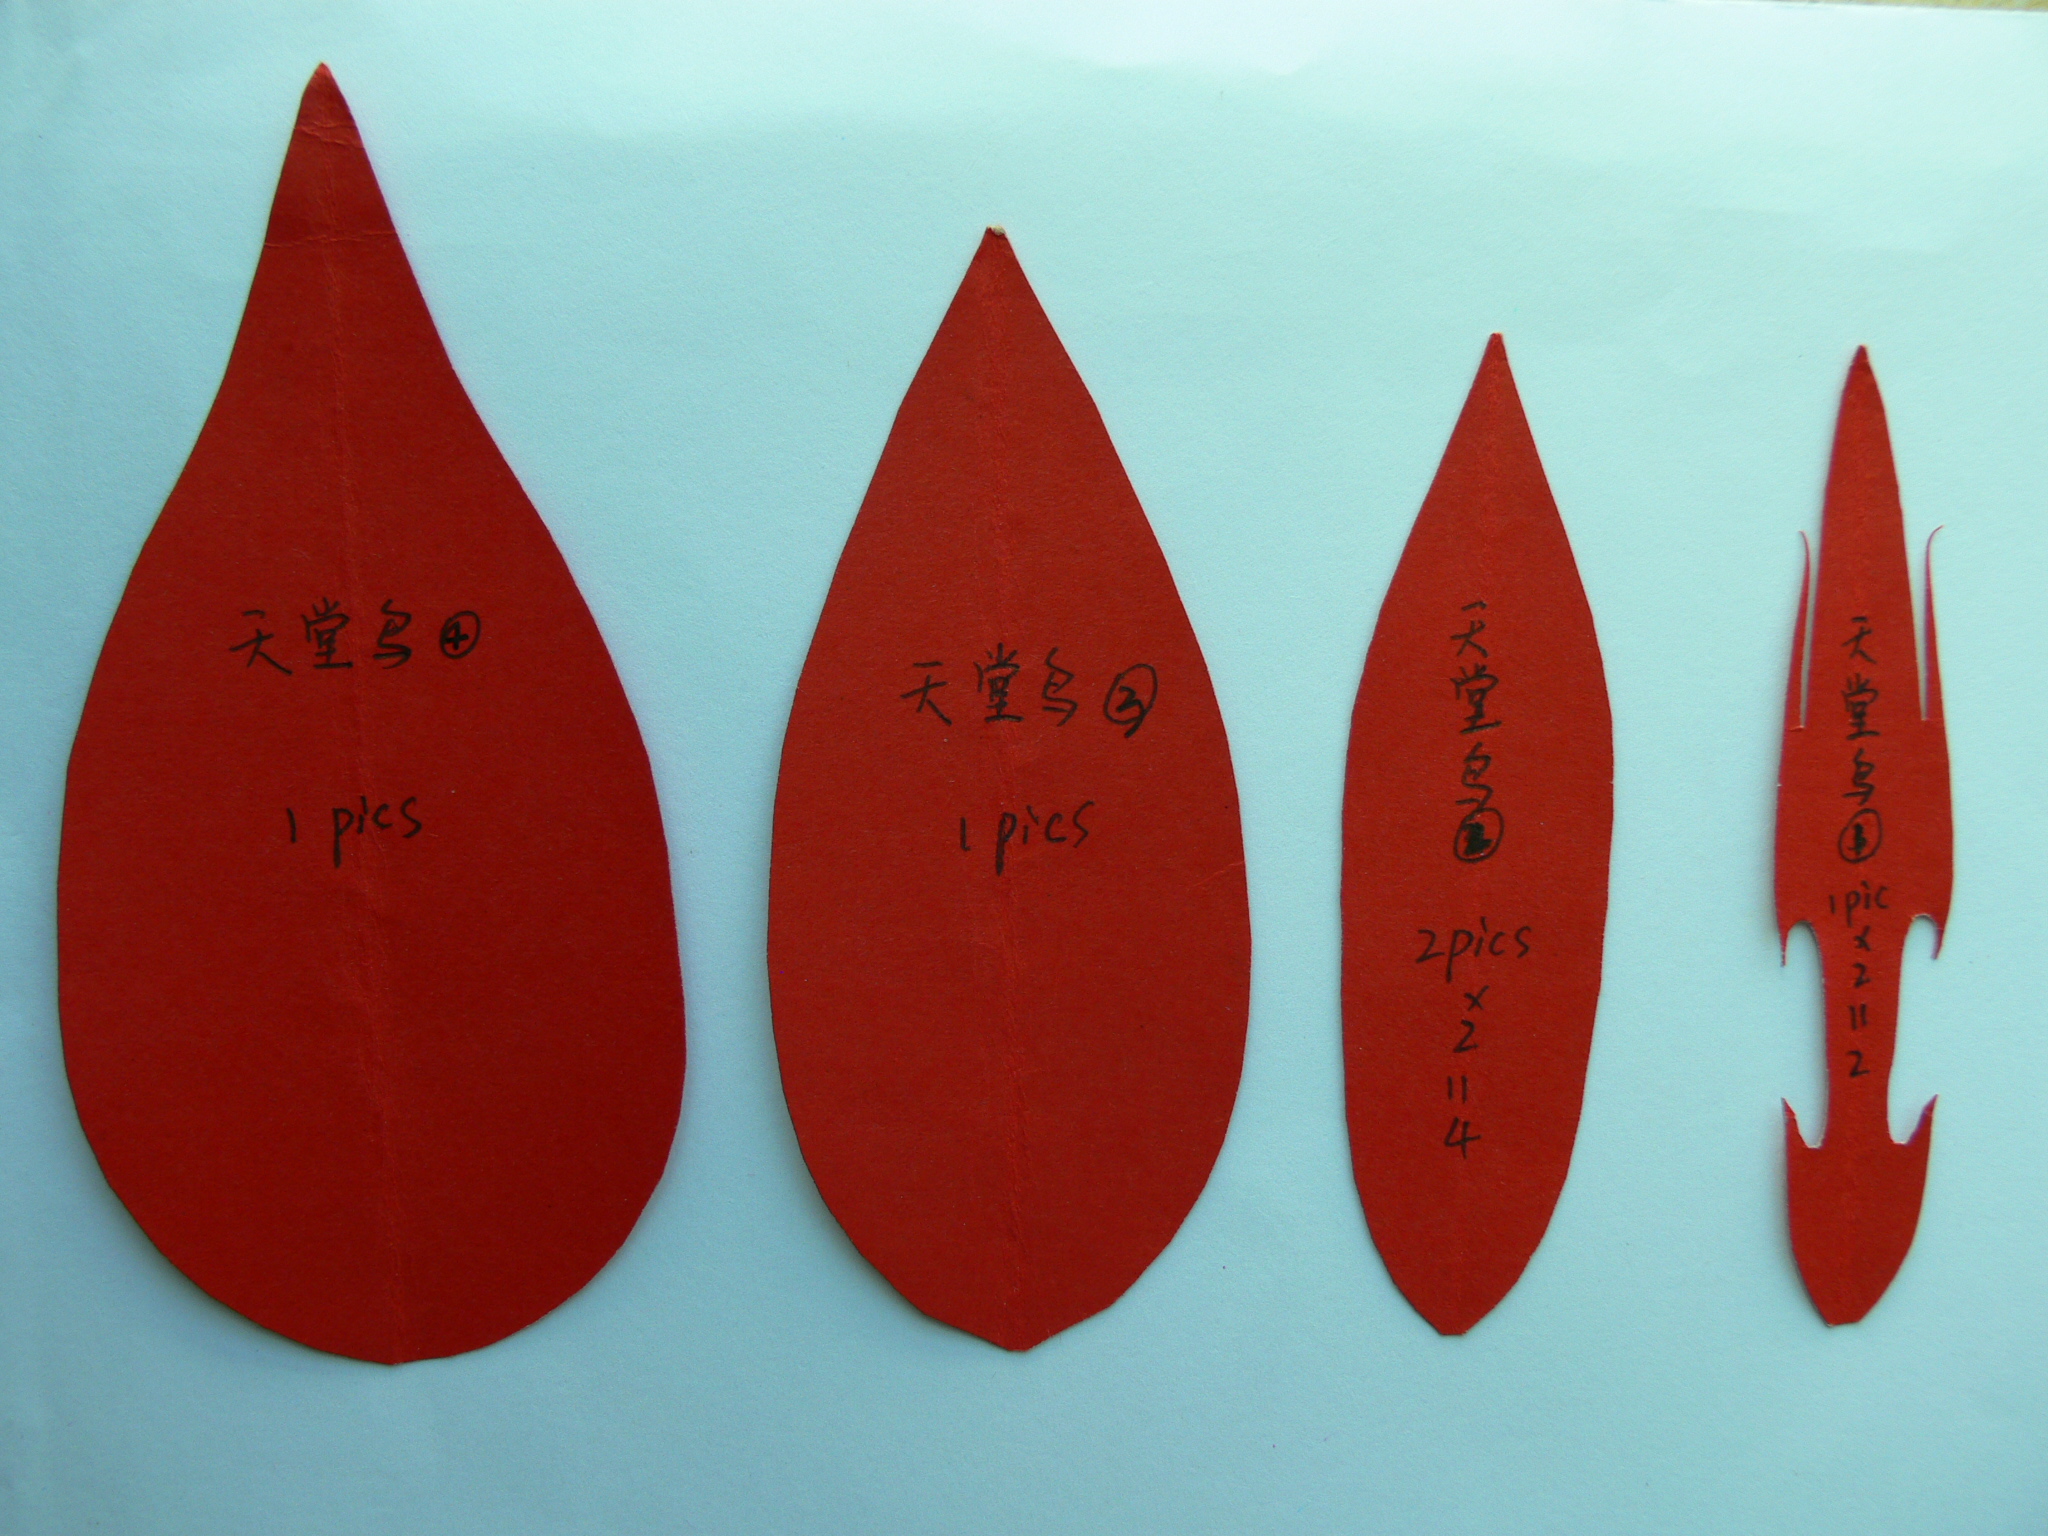 天堂鸟④
1 pics
天堂鸟③
1 pics
天堂鸟②
2pics
×
2
=
4
天堂鸟①
1pic
×
2
=
2